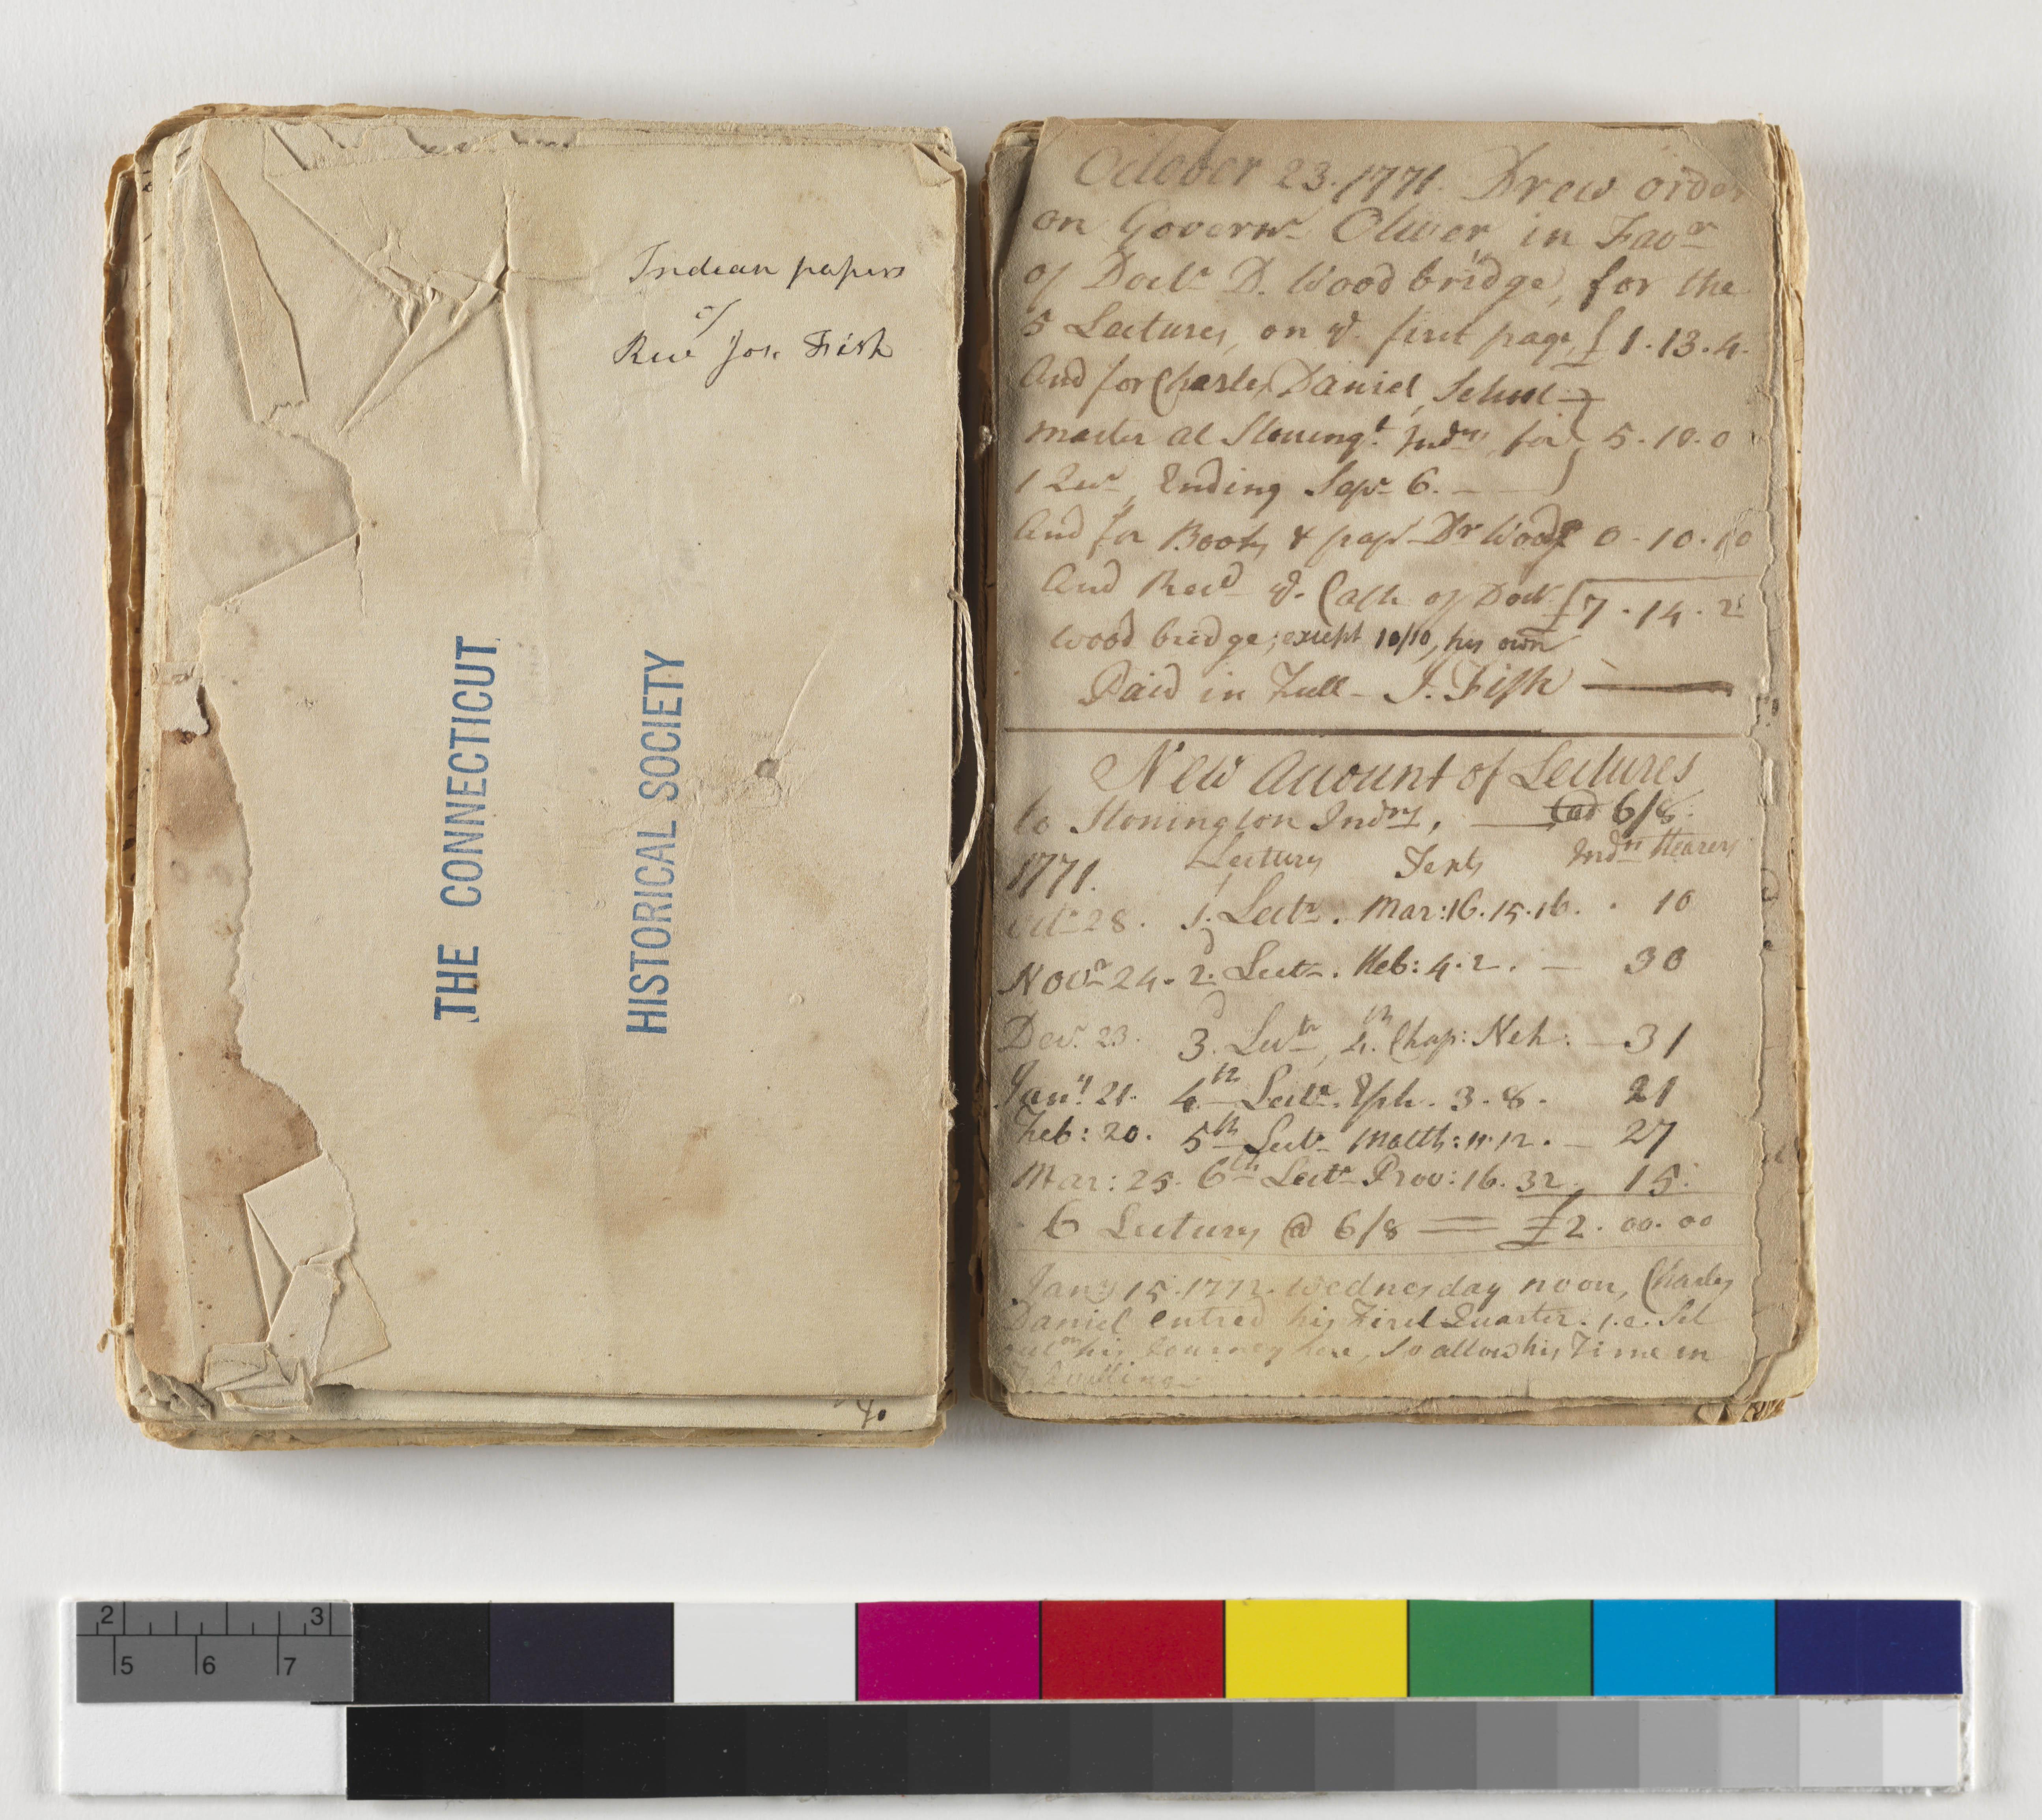 Indian papers
of
Rev Jos. Fish
THE CONNECTICUT
HISTORICAL SOCIETY
October 23. 1771. Drew order
on Governr Oliver, in Favr
of Doctr D. Woodbridge, for the
5 Lectures, on ye first page, £ 1.13.4.
And for Charles Daniel, School-
master at Stoningt Indns, for 5.10.0
1 Qur, Ending Sepr 6.
And for Books & papr Dr Woodg 0.10.10
And Recd ye Cash of Doctr £7.14.2
Woodbridge; except 10/10, his own
Paid in Full - J. Fish
New Account of Lectures
to Stonington Indns, 6/8.
1771. Lectures Texts Indn Hearers
Octr 28. 1. Lectr. Mar: 16.15.16. 10
Novr 24. 2d. Lectr. Heb: 4.2. 30
Decr 23. 3d. Lectr, 4th Chap: Neh: 31
Jany 21. 4th Lectr. Eph. 3.8. 21
Feb: 20. 5th Lectr Matth: 11.12. 27
Mar: 25. 6th Lectr Prov: 16.32. 15.
6 Lectures @ 6/8 = £2.00.00
Jany 15. 1772. Wednesday noon, Charles
Daniel entred his First Quarter. i.e. Set
out on his Journey here, So allow his Time in
Travelling
2 3
5 6 7